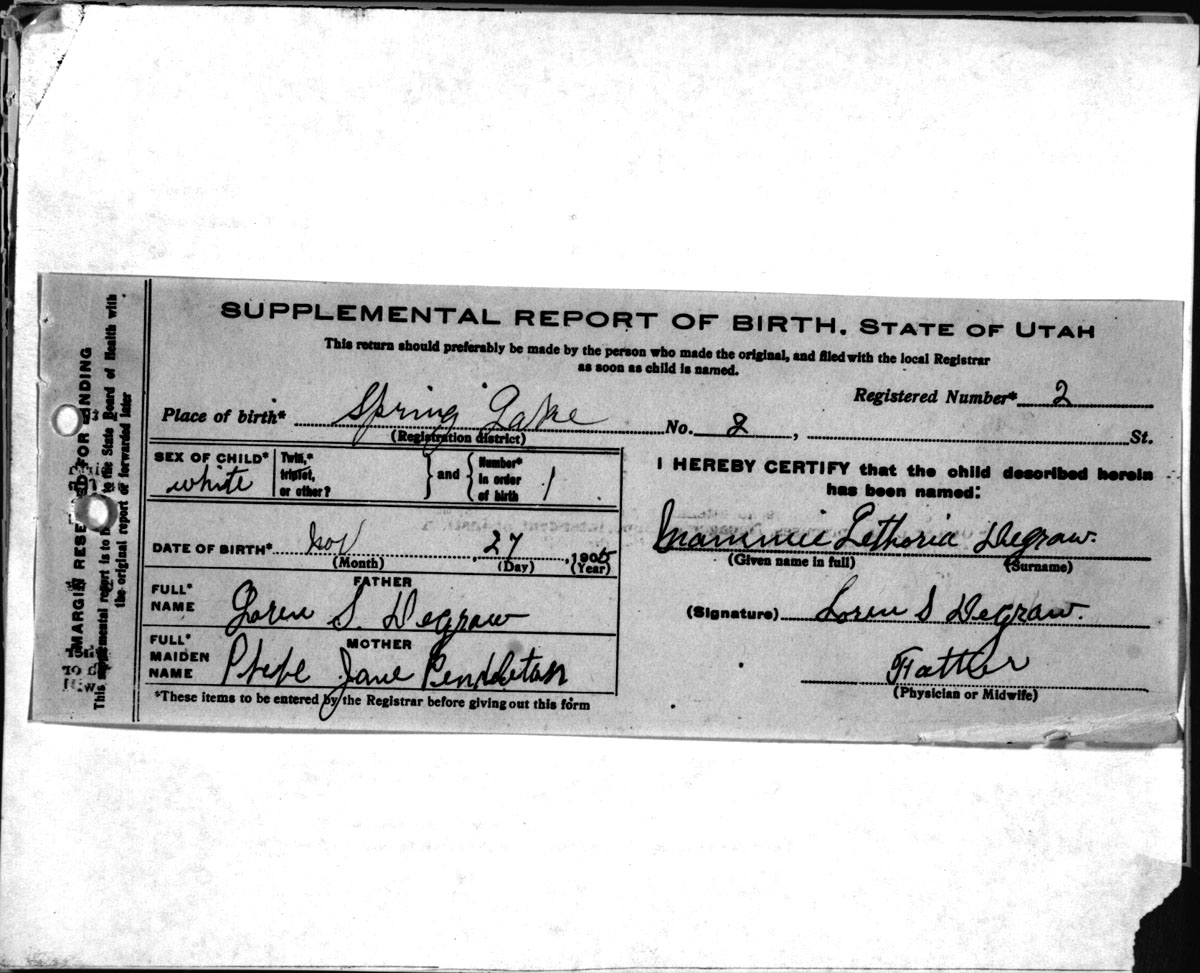 SUPPLEMENTAL REPORT OF BIRTH. STATE OF UTAH
This return should preferably be made by the person who made the original, and filed with the local Registrar
as soon as child is named.
Registered Number* 2
Place of birth* Spring Lake No. 2, St.
(Registration district)
SEX OF CHILD* white Twin,* triplet, or other? } and { Number* in order of birth 1
DATE OF BIRTH* Nov 27, 1905
(Month) (Day) (Year)
FATHER
FULL* NAME Loren S. Degraw
MOTHER
FULL* MAIDEN NAME Phebe Jane Pendleton
*These items to be entered by the Registrar before giving out this form
I HEREBY CERTIFY that the child described herein
has been named:
Mammie Lethoria Degraw.
(Given name in full) (Surname)
(Signature) Loren S Degraw.
Father
(Physician or Midwife)
MARGIN RESERVED FOR BINDING
This supplemental report is to the State Board of Health with
the original report or forwarded later